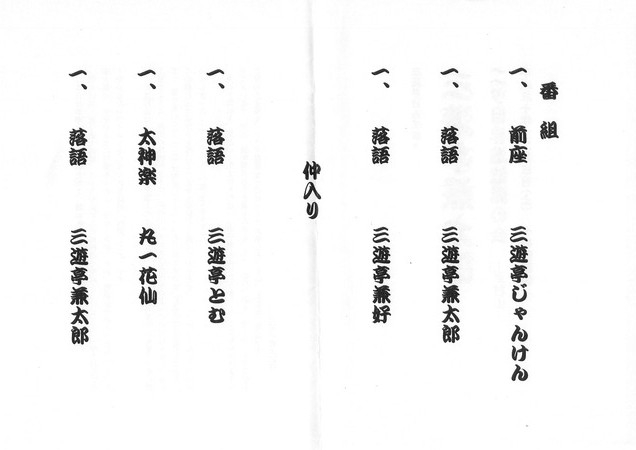 番組
一、 前座 三遊亭じゃんけん
一、 落語 三遊亭兼太郎
一、 落語 三遊亭兼好
仲入り
一、 落語 三遊亭とむ
一、 太神楽 丸一花仙
一、 落語 三遊亭兼太郎